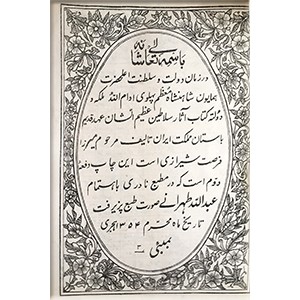 باسمه تعالی شانه
در زمان دولت و سلطنت اعلیحضرت
همایون شاهنشاه معظم پهلوی ادام الله ملکه و
دولته کتاب آثار سلاطین عظیم الشان عهد قدیم
باستان مملکت ایران تالیف مرحوم میرزا
فرصت شیرازی است این چاپ دفعه
دوم است که در مطبع نادری باهتمام
عبدالله طهرانی صورت طبع پذیرفت
تاریخ ماه محرم ۱۳۵۴ هجری
بمبئی
۳